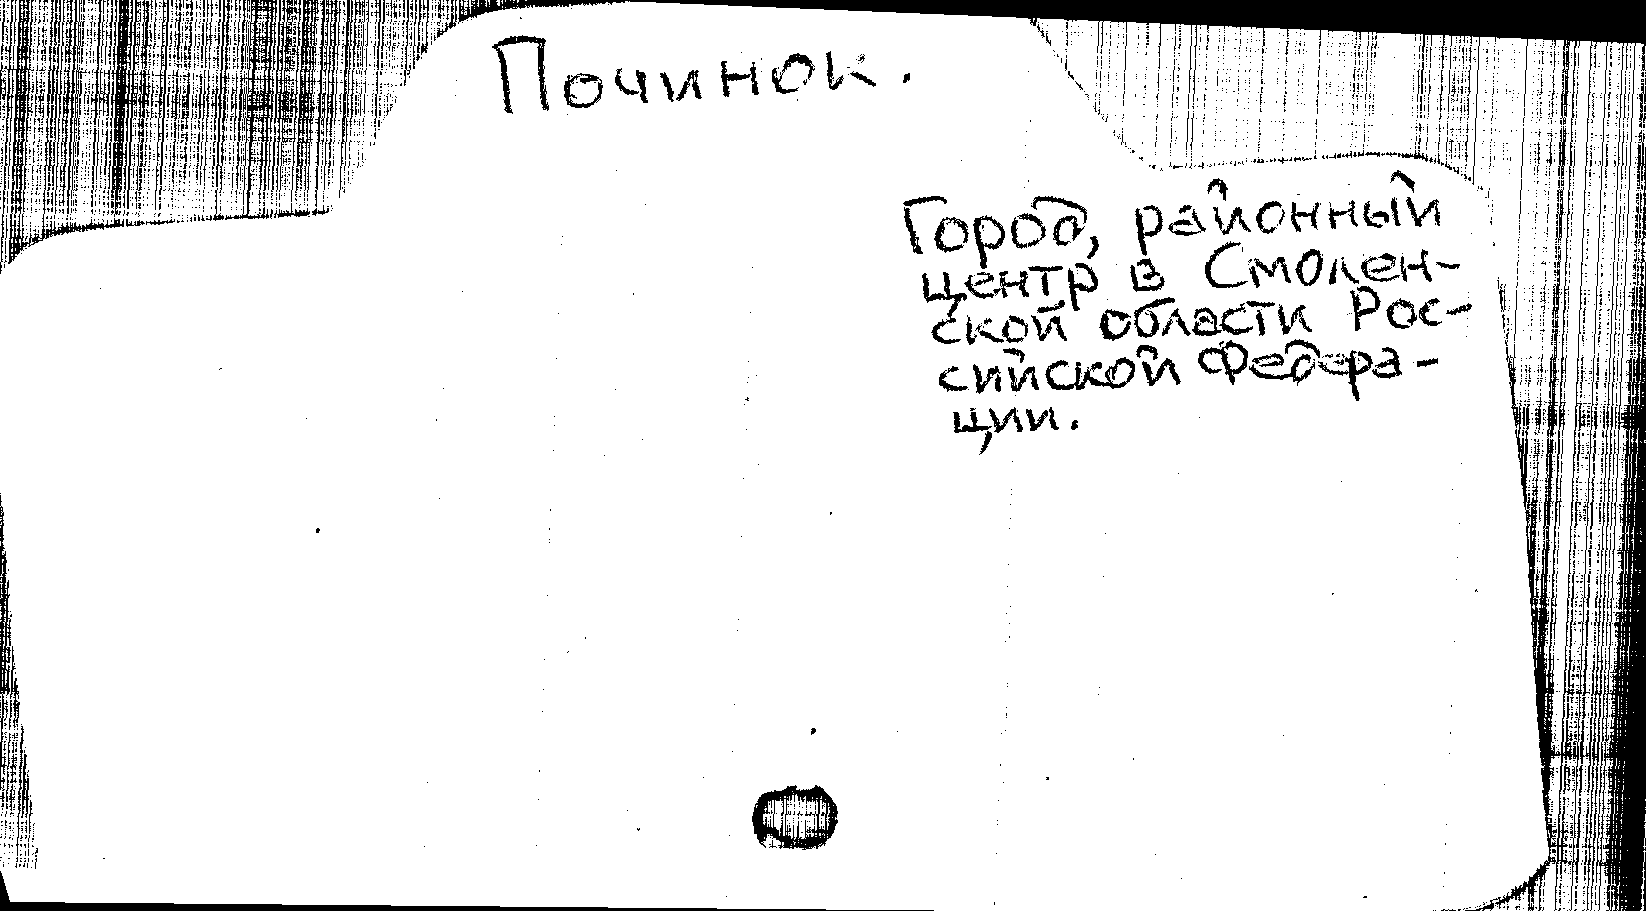 Починок.
Город, районный
центр в Смолен-
ской области Рос-
сийской Федера-
ции.